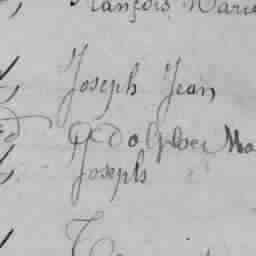 François Marie
Joseph Jean
Adolphe Ma
Joseph